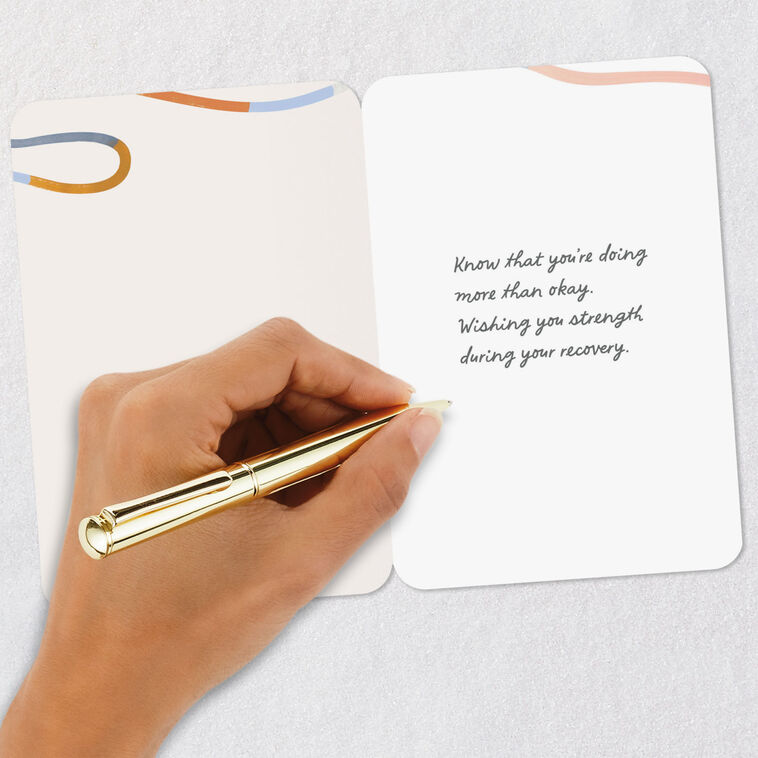 Know that you're doing
more than okay.
Wishing you strength
during your recovery.